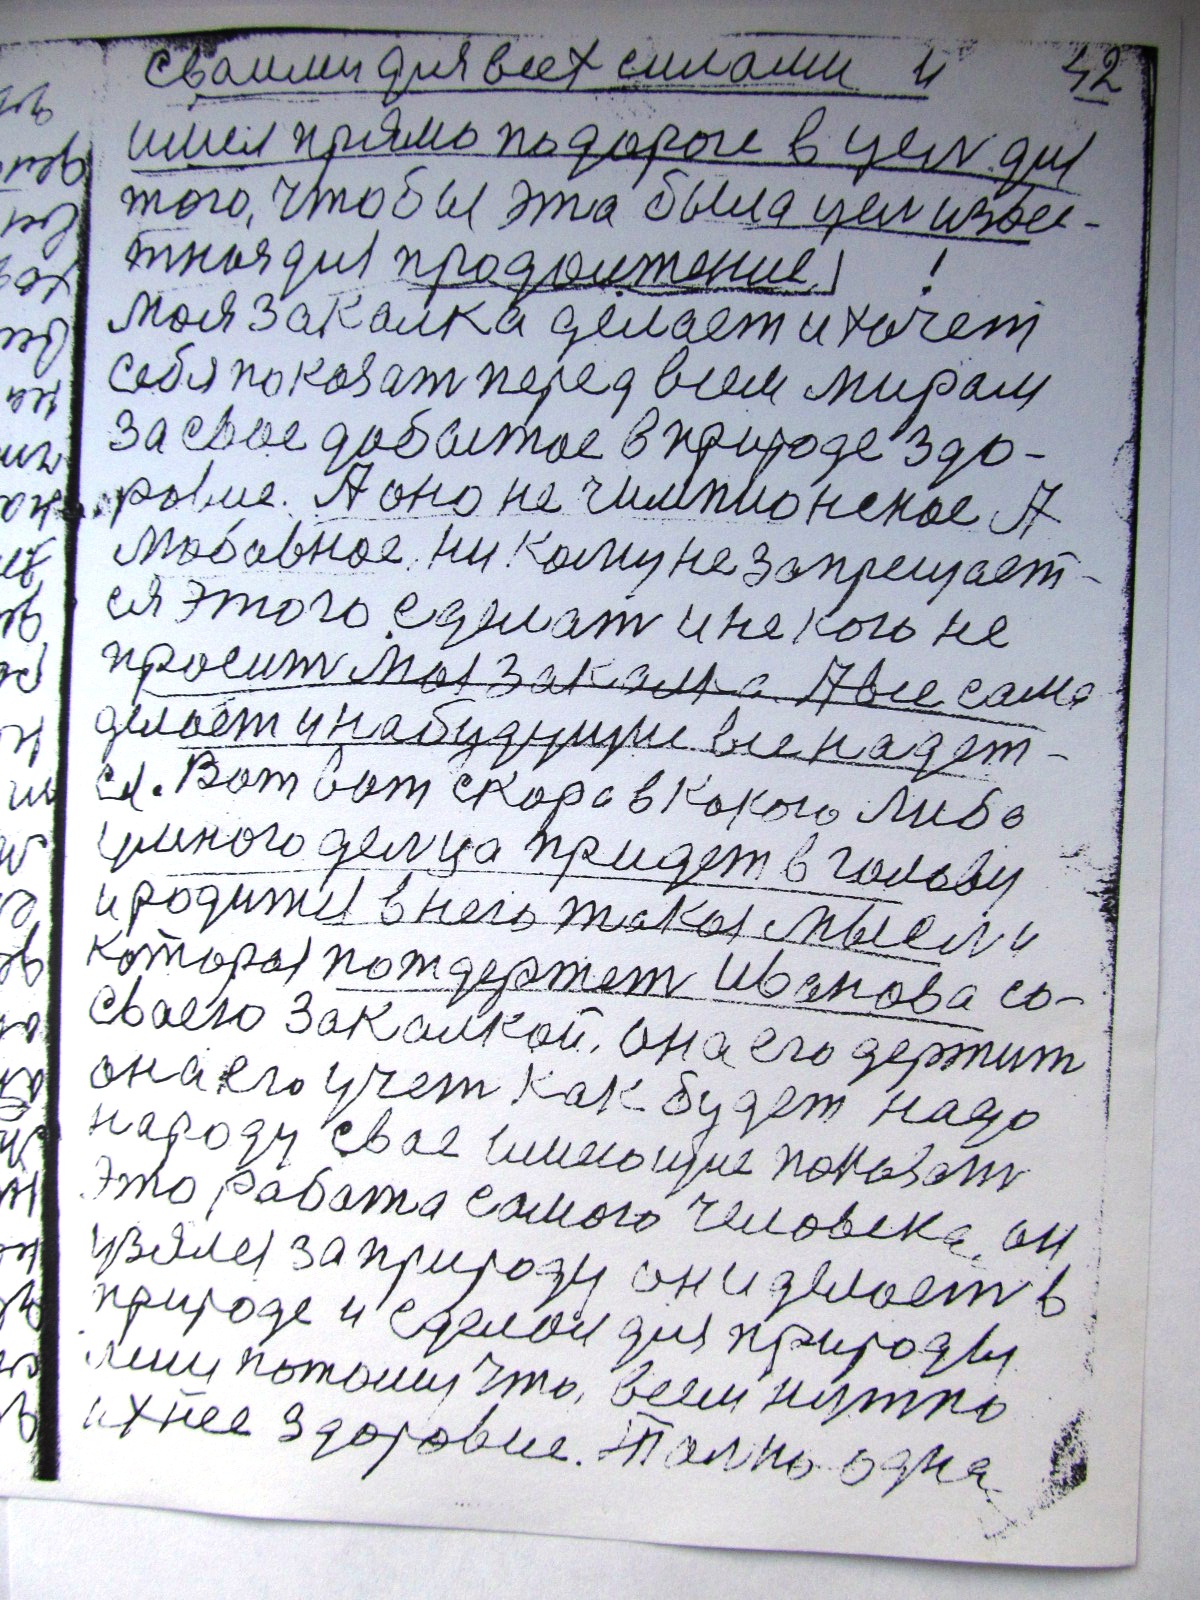 сваими для всех силами и 42
имел прямо по дороге в цел для
того, чтобы эта была цел извес-
тная для продолжение !
Моя закалка делает и хочет
себя показат перед всем мирам
за свое добытое в природе здо-
ровие. А оно не чимпионское А
Мабавное ни кому не запрещает-
ся этого сделат и не кого не
просит Моя закалка А все сама
делает и на будущие все надет-
ся. Вот вот скора в какого либо
умного делца придет в голову
и родится в него такая мысл и
которая поддержет Иванова со-
своего закалкой, она его держит
она его учет как будет надо
народу свае имеющие показат
это работа самого человека, он
взялся за природу он и делает в
природе и сделал для природы
потому что, всем нужно
ихнее здоровие. Толко одна